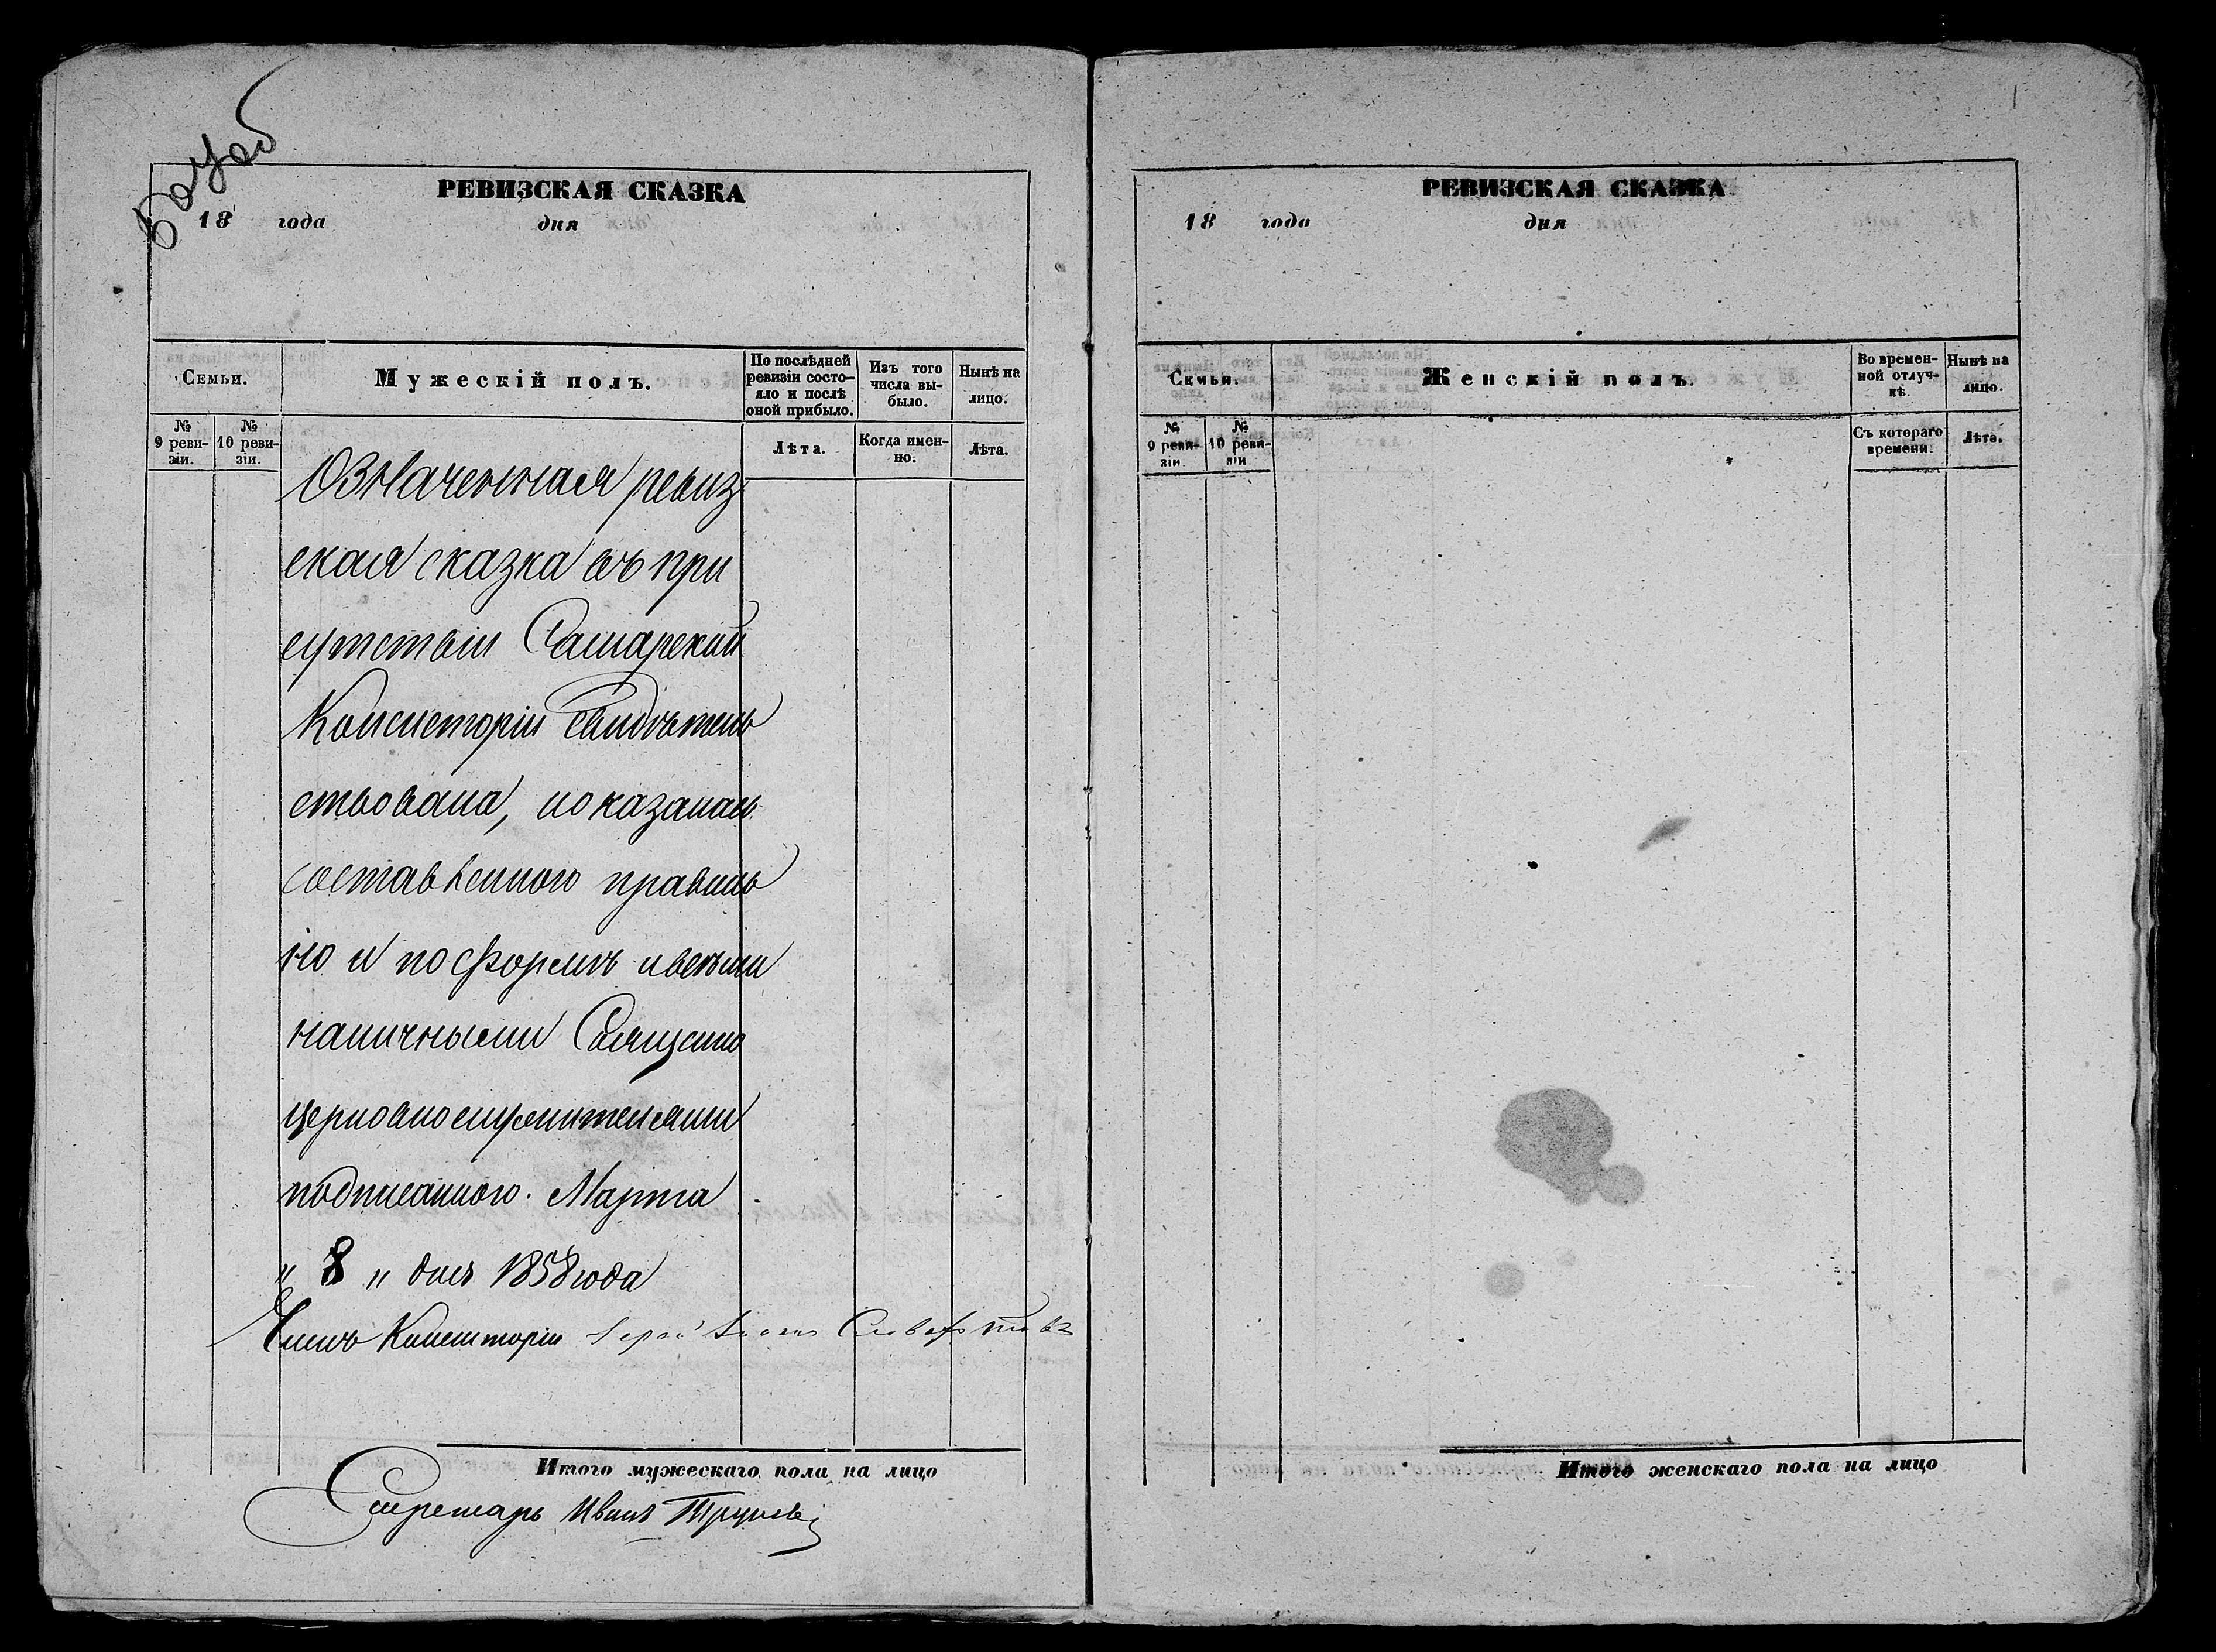 РЕВИЗСКАЯ СКАЗКА
18 года дня
Семьи.
Мужескій полъ.
По послѣдней ревизіи состояло и послѣ оной прибыло.
Изъ того числа выбыло.
Нынѣ на лицо.
№ 9 ревизіи.
№ 10 ревизіи.
Лѣта.
Когда именно.
Лѣта.
Означенная ревиз
ская сказка въ при
сутствіи Самарской
Консисторіи свидѣтель
ствована, показалась
составленною правиль
но и по формѣ и всѣми
наличными Священно
церковнослужителями
подписанною. Марта
„ 8 „ дня 1858 года
Членъ Консисторіи
Итого мужескаго пола на лицо
Секретарь Иванъ
РЕВИЗСКАЯ СКАЗКА
18 года дня
Семьи.
Женскій полъ.
Во временной отлучкѣ.
Нынѣ на лицо.
№ 9 ревизіи.
№ 10 ревизіи
Съ котораго времени.
Лѣта.
Итого женскаго пола на лицо